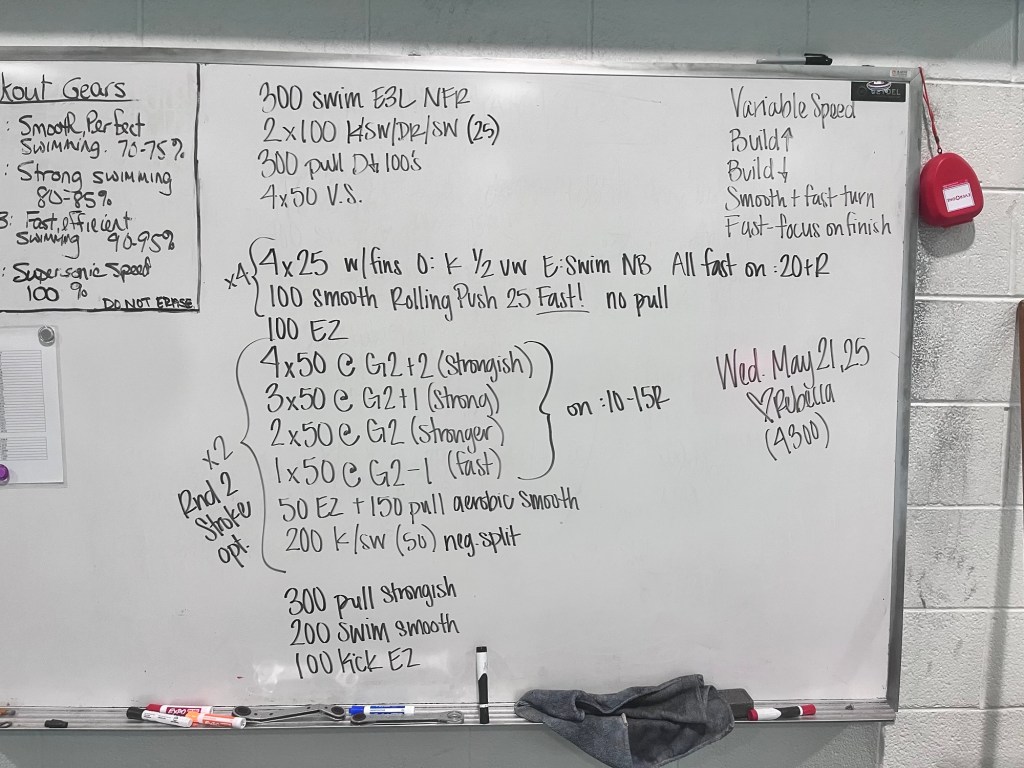 kout Gears
: Smooth, Perfect
Swimming. 70-75%
: Strong swimming
80-85%
3: Fast, efficient
Swimming 90-95%
: Supersonic Speed
100 %
DO NOT ERASE
300 swim E3L NFR
2x100 K/SW/DR/SW (25)
300 pull D↓ 100's
4x50 V.S.
x4
4x25 w/fins O: K 1/2 vw E: Swim NB All fast on :20+R
100 smooth Rolling Push 25 Fast! no pull
100 EZ
x2
Rnd 2
Stroke
opt.
4x50 @ G2+2 (Strongish)
3x50 @ G2+1 (Strong)
2x50 @ G2 (Stronger)
1x50 @ G2-1 (fast)
on :10-15R
50 EZ + 150 pull aerobic smooth
200 K/SW (50) neg. split
300 pull strongish
200 Swim smooth
100 Kick EZ
Variable Speed
Build↑
Build↓
Smooth + fast turn
Fast-focus on finish
Wed. May 21, 25
♡ Rebecca
(4300)
EXPO